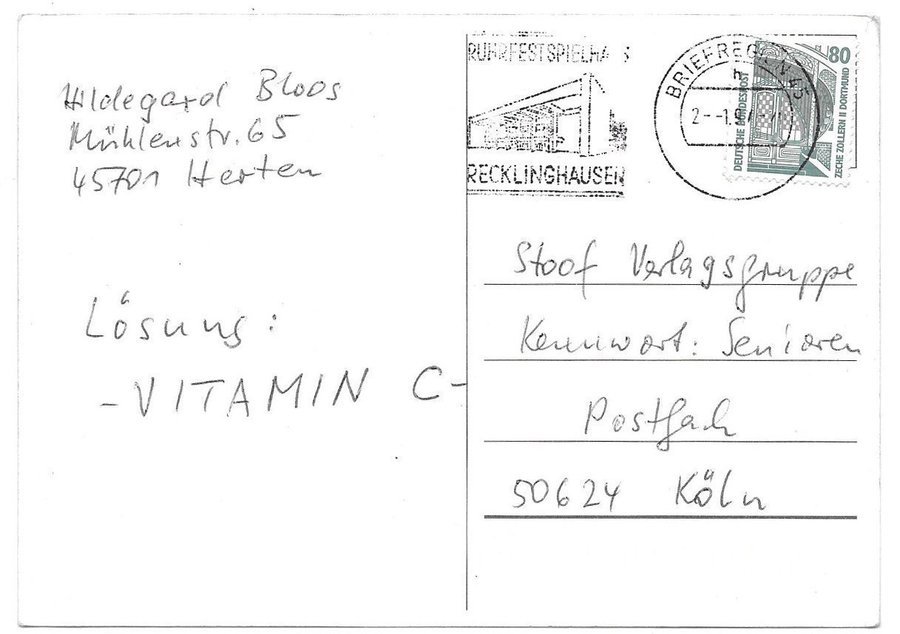 Hildegard Bloos
Mühlenstr. 65
45701 Herten
Lösung:
-VITAMIN C-
RUHRFESTSPIELHAUS
RECKLINGHAUSEN
BRIEFREGION 45
80
DEUTSCHE BUNDESPOST
ZECHE ZOLLERN II DORTMUND
Stoof Verlagsgruppe
Kennwort: Senioren
Postfach
50624 Köln